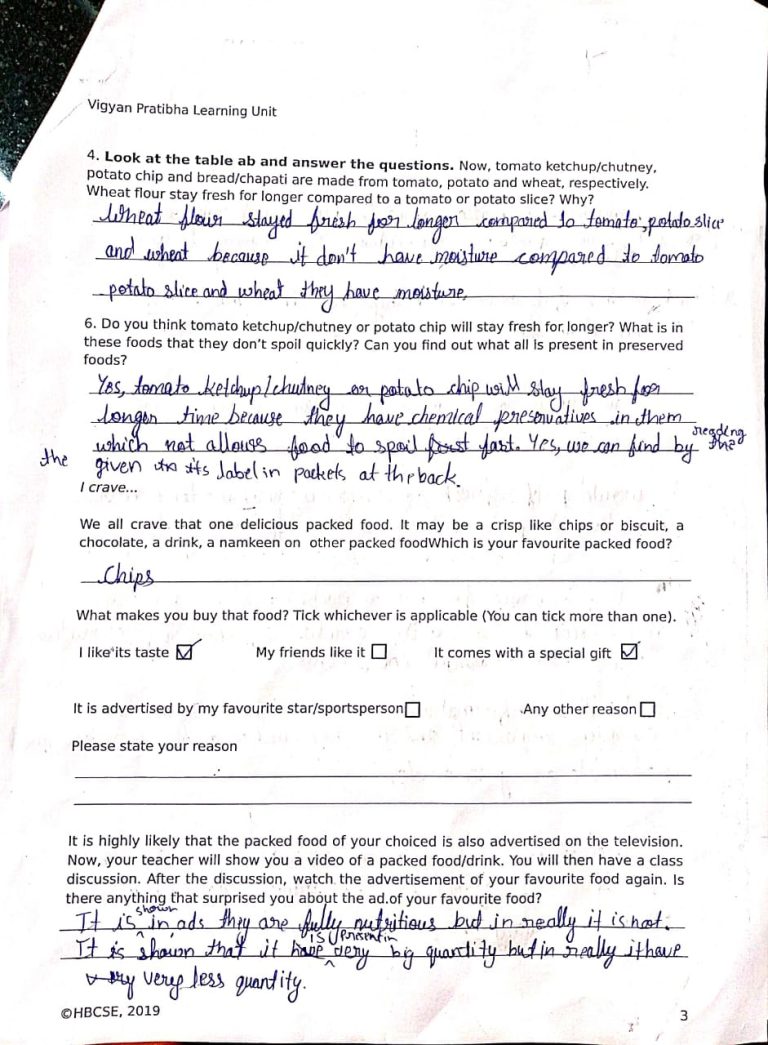 Vigyan Pratibha Learning Unit
4. Look at the table ab and answer the questions. Now, tomato ketchup/chutney,
potato chip and bread/chapati are made from tomato, potato and wheat, respectively.
Wheat flour stay fresh for longer compared to a tomato or potato slice? Why?
Wheat flour stayed fresh for longer compared to tomato, potato slice
and wheat because it don't have moisture compared to tomato
potato slice and wheat they have moisture.
6. Do you think tomato ketchup/chutney or potato chip will stay fresh for longer? What is in
these foods that they don't spoil quickly? Can you find out what all is present in preserved
foods?
Yes, tomato ketchup/chutney or potato chip will stay fresh for
longer time because they have chemical preservatives in them
which not allows food to spoil fast. Yes, we can find by reading the
the given its label in packets at the back.
I crave...
We all crave that one delicious packed food. It may be a crisp like chips or biscuit, a
chocolate, a drink, a namkeen on other packed foodWhich is your favourite packed food?
Chips
What makes you buy that food? Tick whichever is applicable (You can tick more than one).
I like its taste My friends like it It comes with a special gift
It is advertised by my favourite star/sportsperson Any other reason
Please state your reason
It is highly likely that the packed food of your choiced is also advertised on the television.
Now, your teacher will show you a video of a packed food/drink. You will then have a class
discussion. After the discussion, watch the advertisement of your favourite food again. Is
there anything that surprised you about the ad of your favourite food?
It is shown in ads they are fully nutritious but in really it is not.
It is shown that it is present in very big quantity but in really it have
very less quantity.
©HBCSE, 2019
3